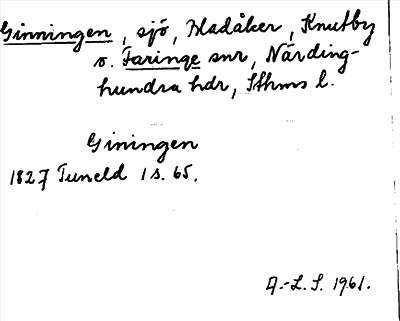 Ginningen, sjö, Bladåker, Knutby
o. Faringe snr, Närding-
hundra hdr, Sthms l.
Giningen
1827 Tuneld 1 s. 65.
A.-L. S. 1961.